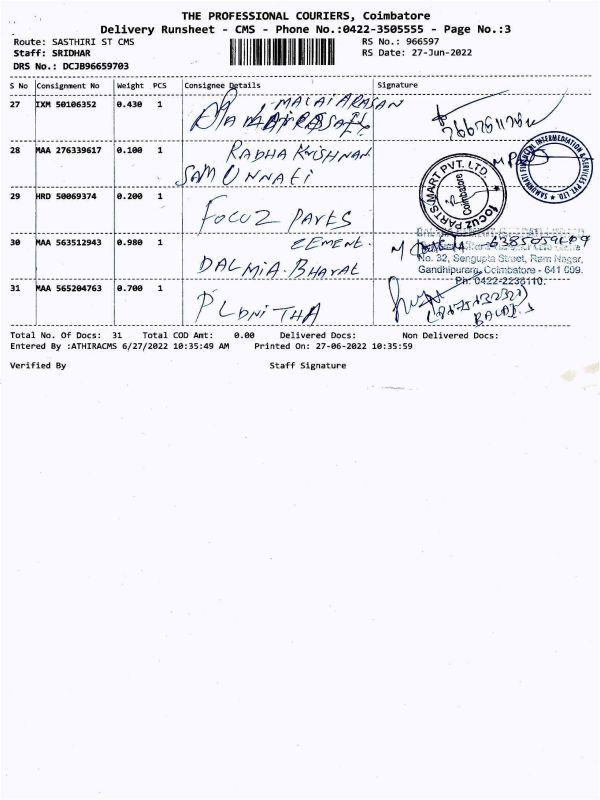 THE PROFESSIONAL COURIERS, Coimbatore
Delivery Runsheet - CMS - Phone No.:0422-3505555 - Page No.:3
Route: SASTHIRI ST CMS
RS No.: 966597
Staff: SRIDHAR
RS Date: 27-Jun-2022
DRS No.: DCJB96659703
S No Consignment No Weight PCS Consignee Details Signature
27 IXM 50106352 0.430 1 MALAIARASAN
28 MAA 276339617 0.100 1 RADHA KRISHNAN
SAMUNNATI
SAMUNNATI FINANCIAL INTERMEDIATION & SERVICES PVT. LTD.
29 HRD 50069374 0.200 1 FOCUZ PARTS
FOCUZ PARTS MART PVT. LTD.
Coimbatore
30 MAA 563512943 0.980 1 CEMENT.
DALMIA BHARAT
No. 32, Sengupta Street, Ram Nagar,
Gandhipuram, Coimbatore - 641 009.
Ph: 0422-2236110.
31 MAA 565204763 0.700 1
BALAJI.S
Total No. Of Docs: 31 Total COD Amt: 0.00 Delivered Docs: Non Delivered Docs:
Entered By :ATHIRACMS 6/27/2022 10:35:49 AM Printed On: 27-06-2022 10:35:59
Verified By Staff Signature